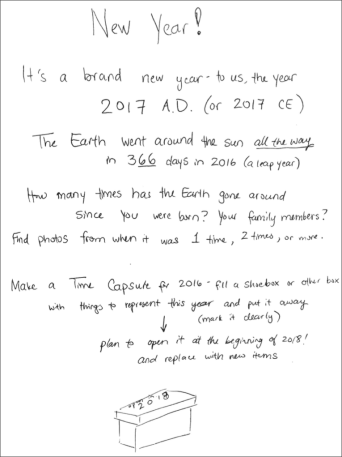 New Year!
It's a brand new year - to us, the year
2017 A.D. (or 2017 CE)
The Earth went around the sun all the way
in 366 days in 2016 (a leap year)
How many times has the Earth gone around
since you were born? Your family members?
Find photos from when it was 1 time, 2 times, or more.
Make a Time Capsule for 2016 - fill a shoebox or other box
with things to represent this year and put it away
(mark it clearly)
plan to open it at the beginning of 2018!
and replace with new items
2018